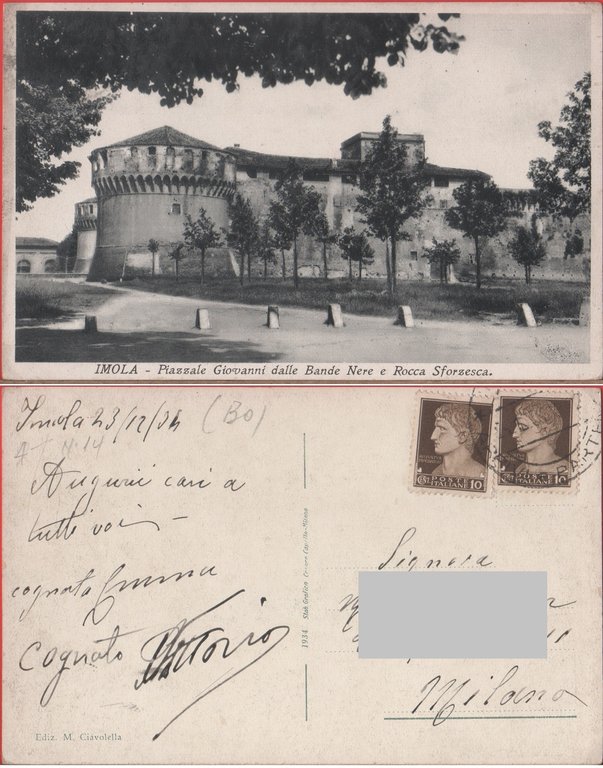 IMOLA - Piazzale Giovanni dalle Bande Nere e Rocca Sforzesca.
Imola 23/12/34 (BO)
N. 14
Auguri cari a
tutti voi
cognata Emma
cognato Vittorio
Ediz. M. Ciavolella
1934 Stab. Grafico Cesare Capello-Milano
POSTE
ITALIANE 10
POSTE
ITALIANE 10
Signora
Milano